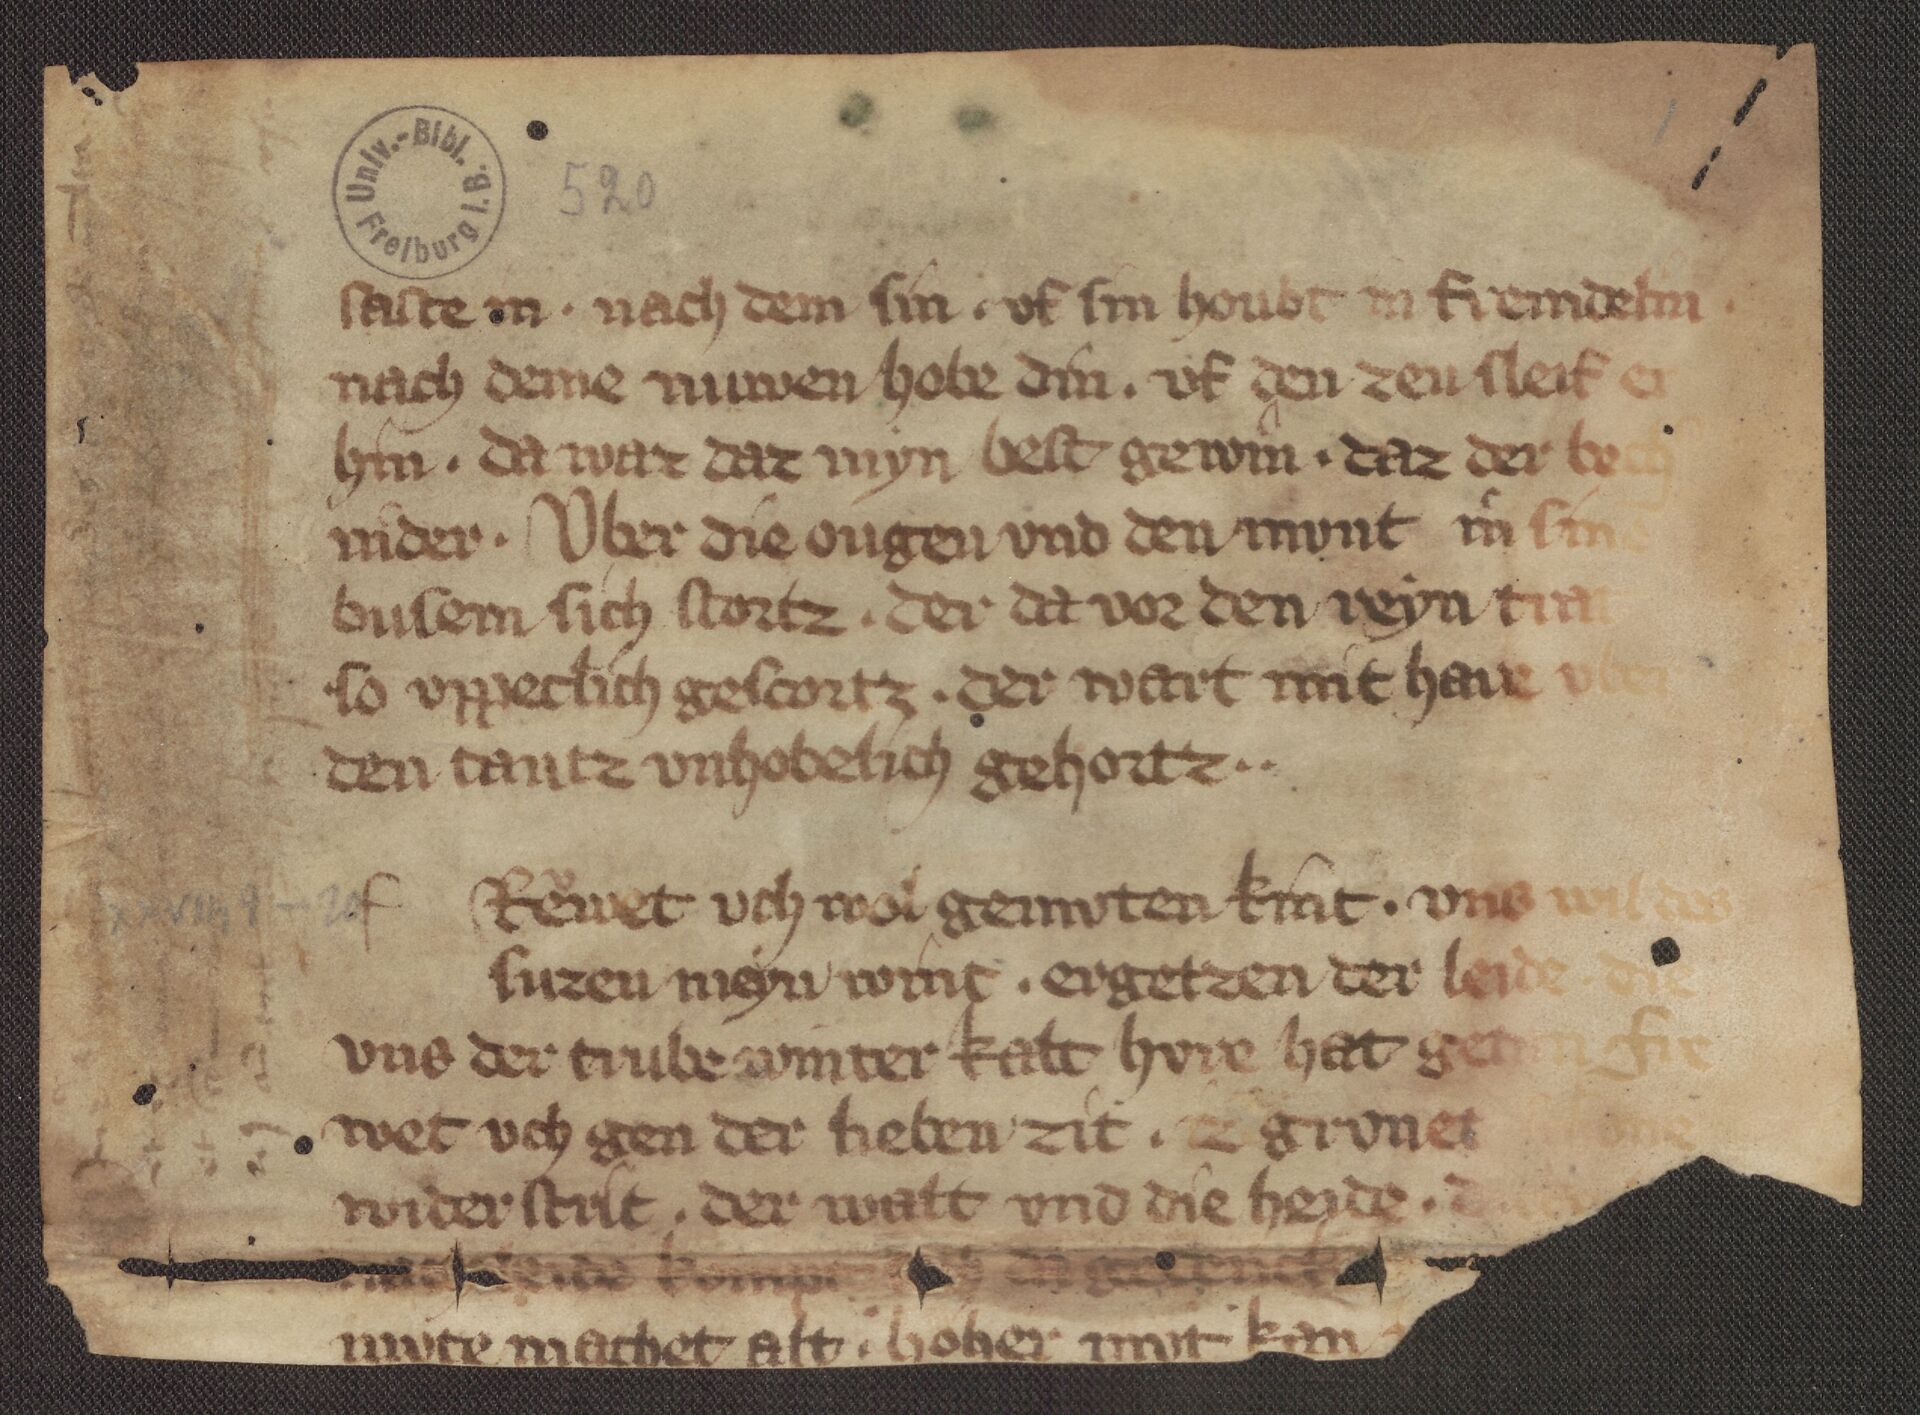 Univ.-Bibl. Freiburg i. B.
520
saste in · nach dem sin · vf sin houbt in fremdelin ·
nach deme nuwen hobe din · vf den zen sleif er
hin · da waz daz myn best gewin · daz der bech
nider · Vber die ougen vnd den mvnt in sine
busem sich stortz · der da vor den reyn trat
so vppeclich gescortz · der wart mit hare vber
den tantz vnhobelich gehortz ··
xxviii, 9 – 20
f Rewet vch wol gemvten kint · vns wil des
suzen meyn wint · ergetzen der leide · die
vns der trube winter kalt hvre hat getan fre
wet vch gen der lieben zit · iz grvnet schone
wider strit · der walt vnd die heyde ·
mvte machet alt · hoher mvt kan